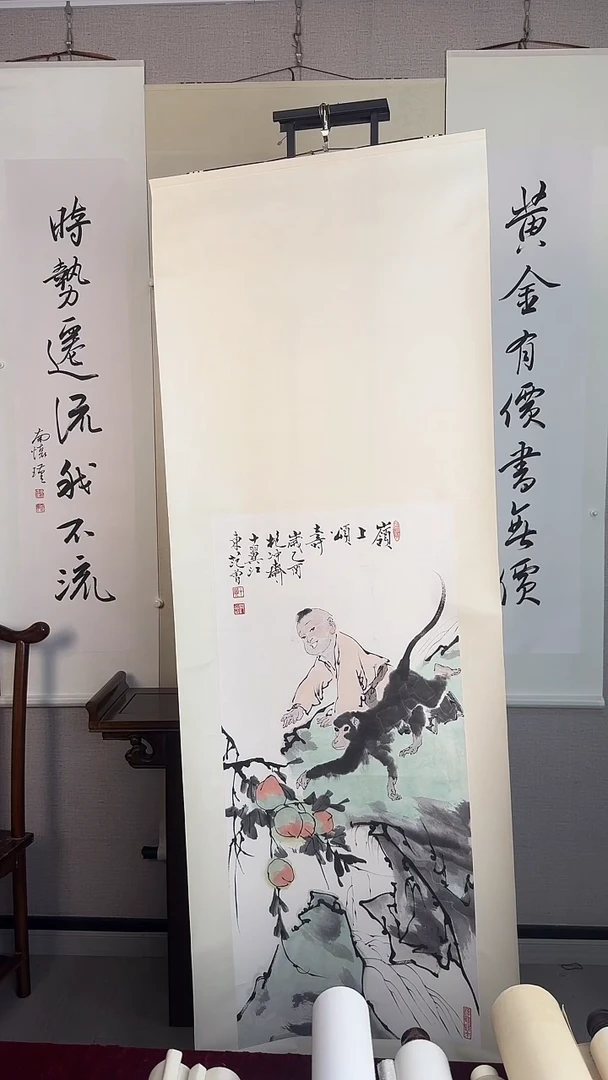 黃金有價書無價
時勢遷流我不流
南懷瑾
嶺上頌壽
歲乙酉
抱沖齋
十翼江
東范曾